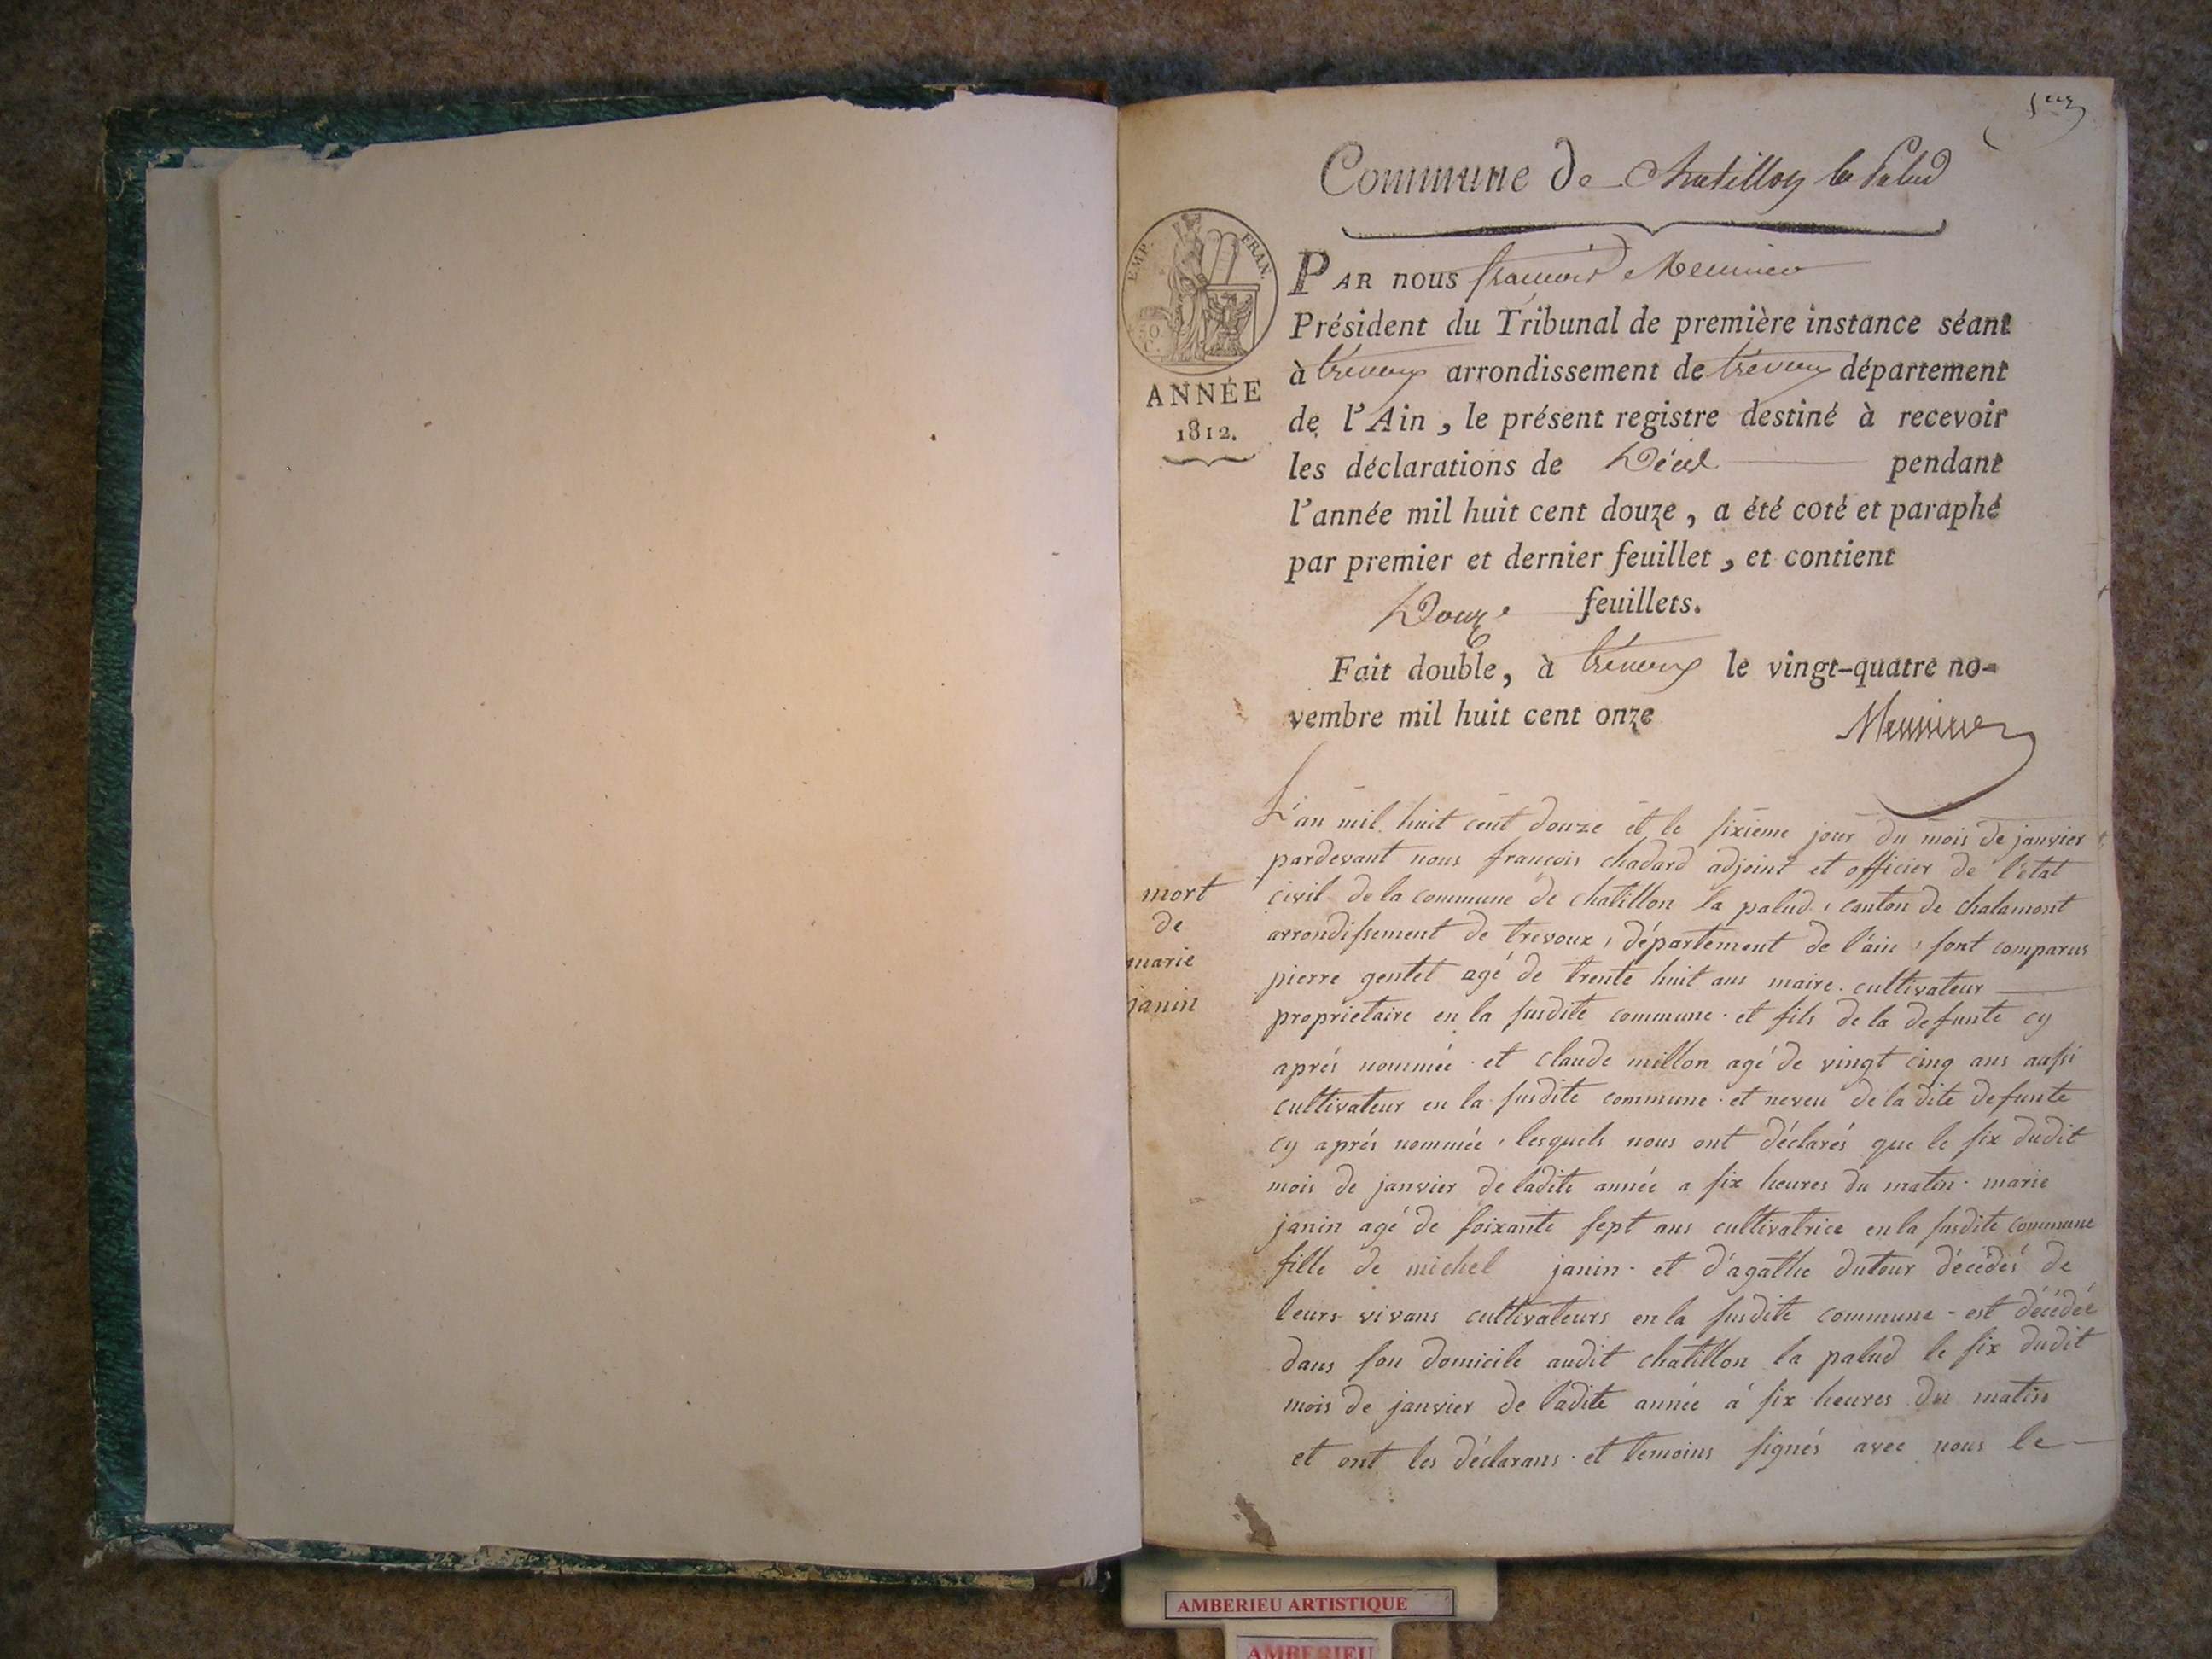 1er
Commune de Chatillon la Palud
EMP. FRAN.
50 C.
ANNÉE
1812.
PAR nous françois Meunier
Président du Tribunal de première instance séant
à trévoux arrondissement de trévoux département
de l'Ain, le présent registre destiné à recevoir
les déclarations de Décès pendant
l'année mil huit cent douze, a été coté et paraphé
par premier et dernier feuillet, et contient
Douze feuillets.
Fait double, à trévoux le vingt-quatre no-
vembre mil huit cent onze
Meunier
mort
de
marie
janin
L'an mil huit cent douze et le sixieme jour du mois de janvier
pardevant nous francois chadard adjoint et officier de l'état
civil de la commune de chatillon la palud, canton de chalamont
arrondissement de trevoux, département de l'ain, sont comparus
pierre gentet agé de trente huit ans maire. cultivateur
proprietaire en la susdite commune. et fils de la defunte cy
aprés nommée. et claude millon agé de vingt cinq ans aussi
cultivateur en la susdite commune. et neveu de la dite defunte
cy aprés nommée, lesquels nous ont déclarés que le six dudit
mois de janvier de ladite année a six heures du matin. marie
janin agé de soixante sept ans cultivatrice en la susdite commune
fille de michel janin. et d'agathe dutour décédés de
leurs vivans cultivateurs en la susdite commune - est décédée
dans son domicile audit chatillon la palud le six dudit
mois de janvier de ladite année á six heures du matin
et ont les déclarans. et temoins signés avec nous le
AMBERIEU ARTISTIQUE
AMBERIEU